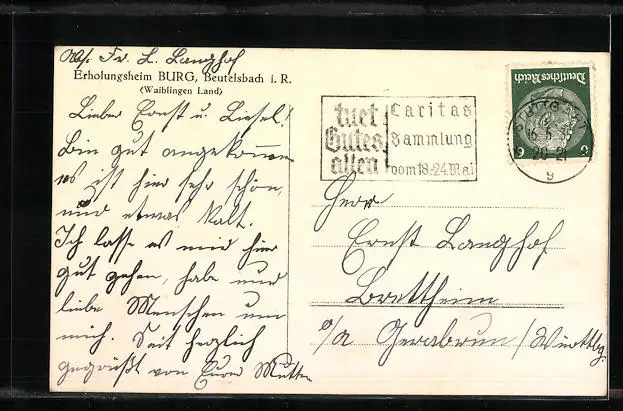 Abs. Fr. L. Langhof
Erholungsheim BURG, Beutelsbach i. R.
(Waiblingen Land)
Lieber Ernst u. Liesel!
Bin gut angekommen
es ist hier sehr schön,
und etwas kalt.
Ich lasse es mir hier
gut gehen, habe nur
liebe Menschen um
mich. Seit herzlich
gegrüßt von Eurer Mutter
tuet
Gutes
allen
Caritas
Sammlung
vom 18.-24. Mai
Deutsches Reich
6 6
STUTTGART
16.5.
20-21
9
Herrn
Ernst Langhof
Brettheim
o/A Gerabrun / Württbg.